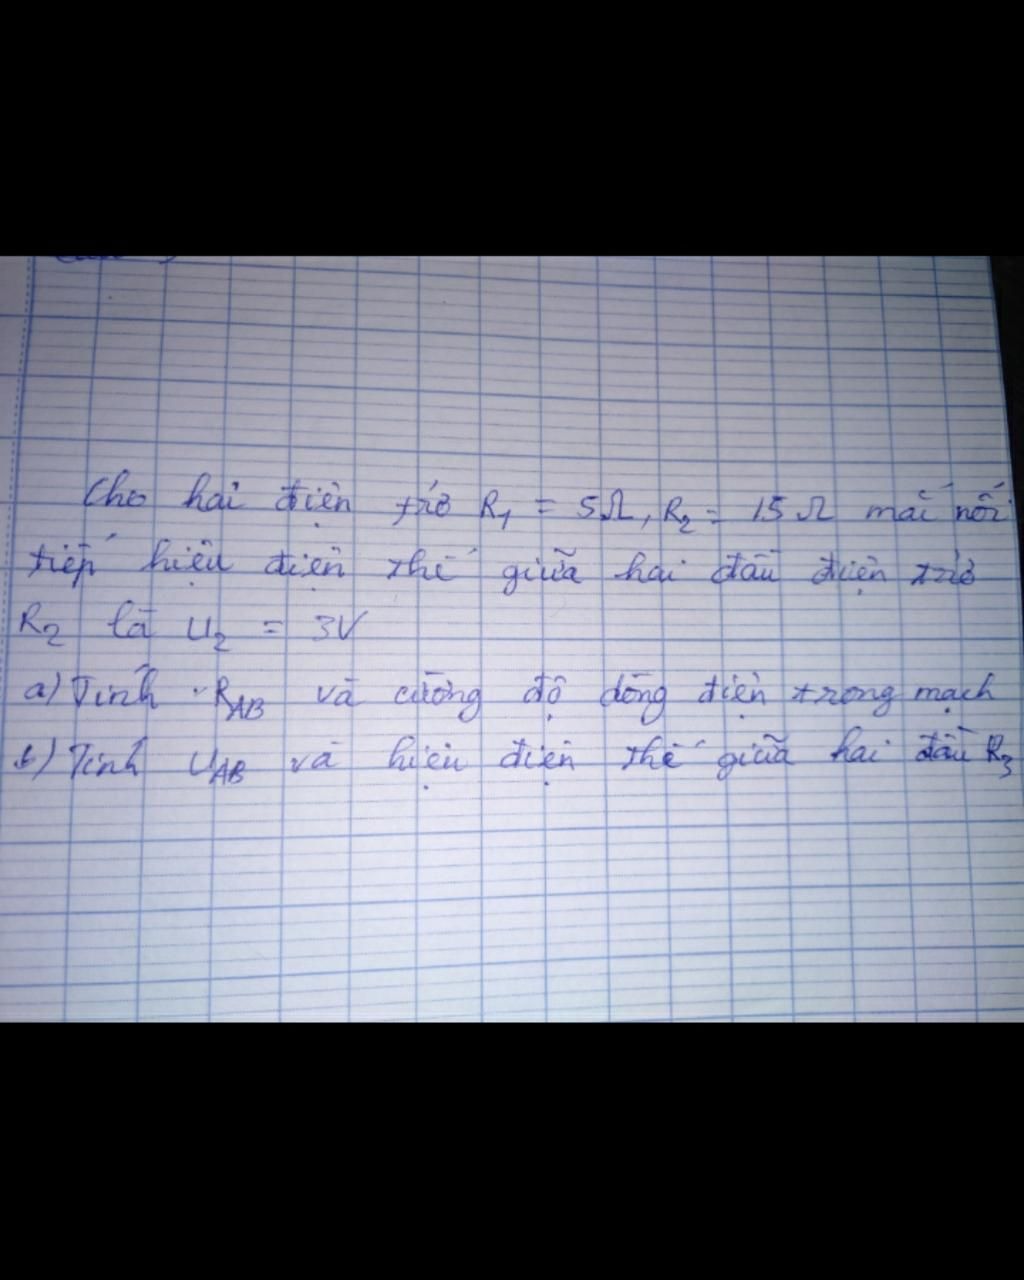 Cho hai điện trở R₁ = 5Ω, R₂ = 15Ω mắc nối
tiếp hiệu điện thế giữa hai đầu điện trở
R₂ là U₂ = 3V
a) Tính R_AB và cường độ dòng điện trong mạch
b) Tính U_AB và hiệu điện thế giữa hai đầu R₃